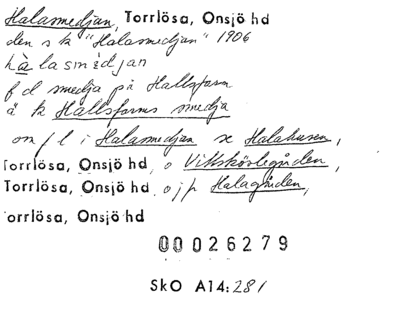 Halasmedjan, Torrlösa, Onsjö hd
den s k "Halasmedjan" 1906
hàlasmèdjan
f d smedja på Hallsfarm
ä k Hallsfarms smedja
om f l i Halasmedjan se Halahusen,
Torrlösa, Onsjö hd, o Vittskövlegården,
Torrlösa, Onsjö hd, o jfr Halagården,
Torrlösa, Onsjö hd
00026279
SkO A14:281